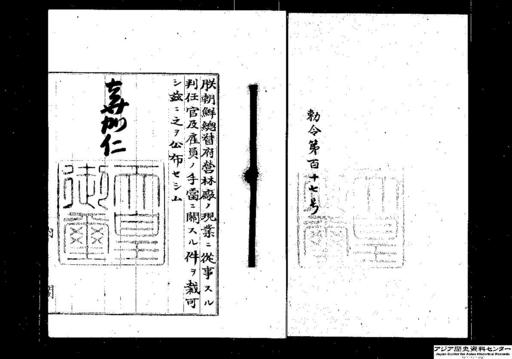 勅令第百十七号
朕朝鮮總督府營林廠ノ現業ニ從事スル
判任官及雇員ノ手當ニ關スル件ヲ裁可
シ玆ニ之ヲ公布セシム
嘉仁
天皇
御璽
内
閣
アジア歴史資料センター
Japan Center for Asian Historical Records